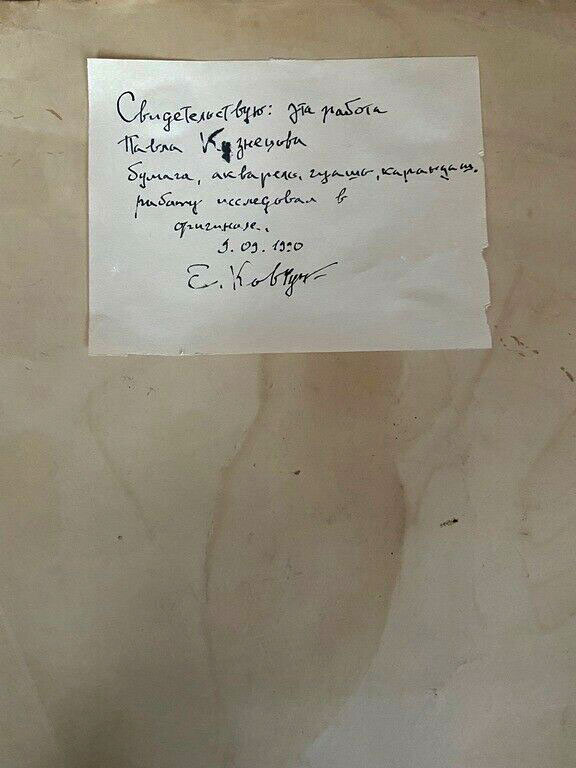 Свидетельствую: эта работа
Павла Кузнецова
бумага, акварель, гуашь, карандаш.
работу исследовал в
оригинале.
9.09.1990
Е. Ковтун